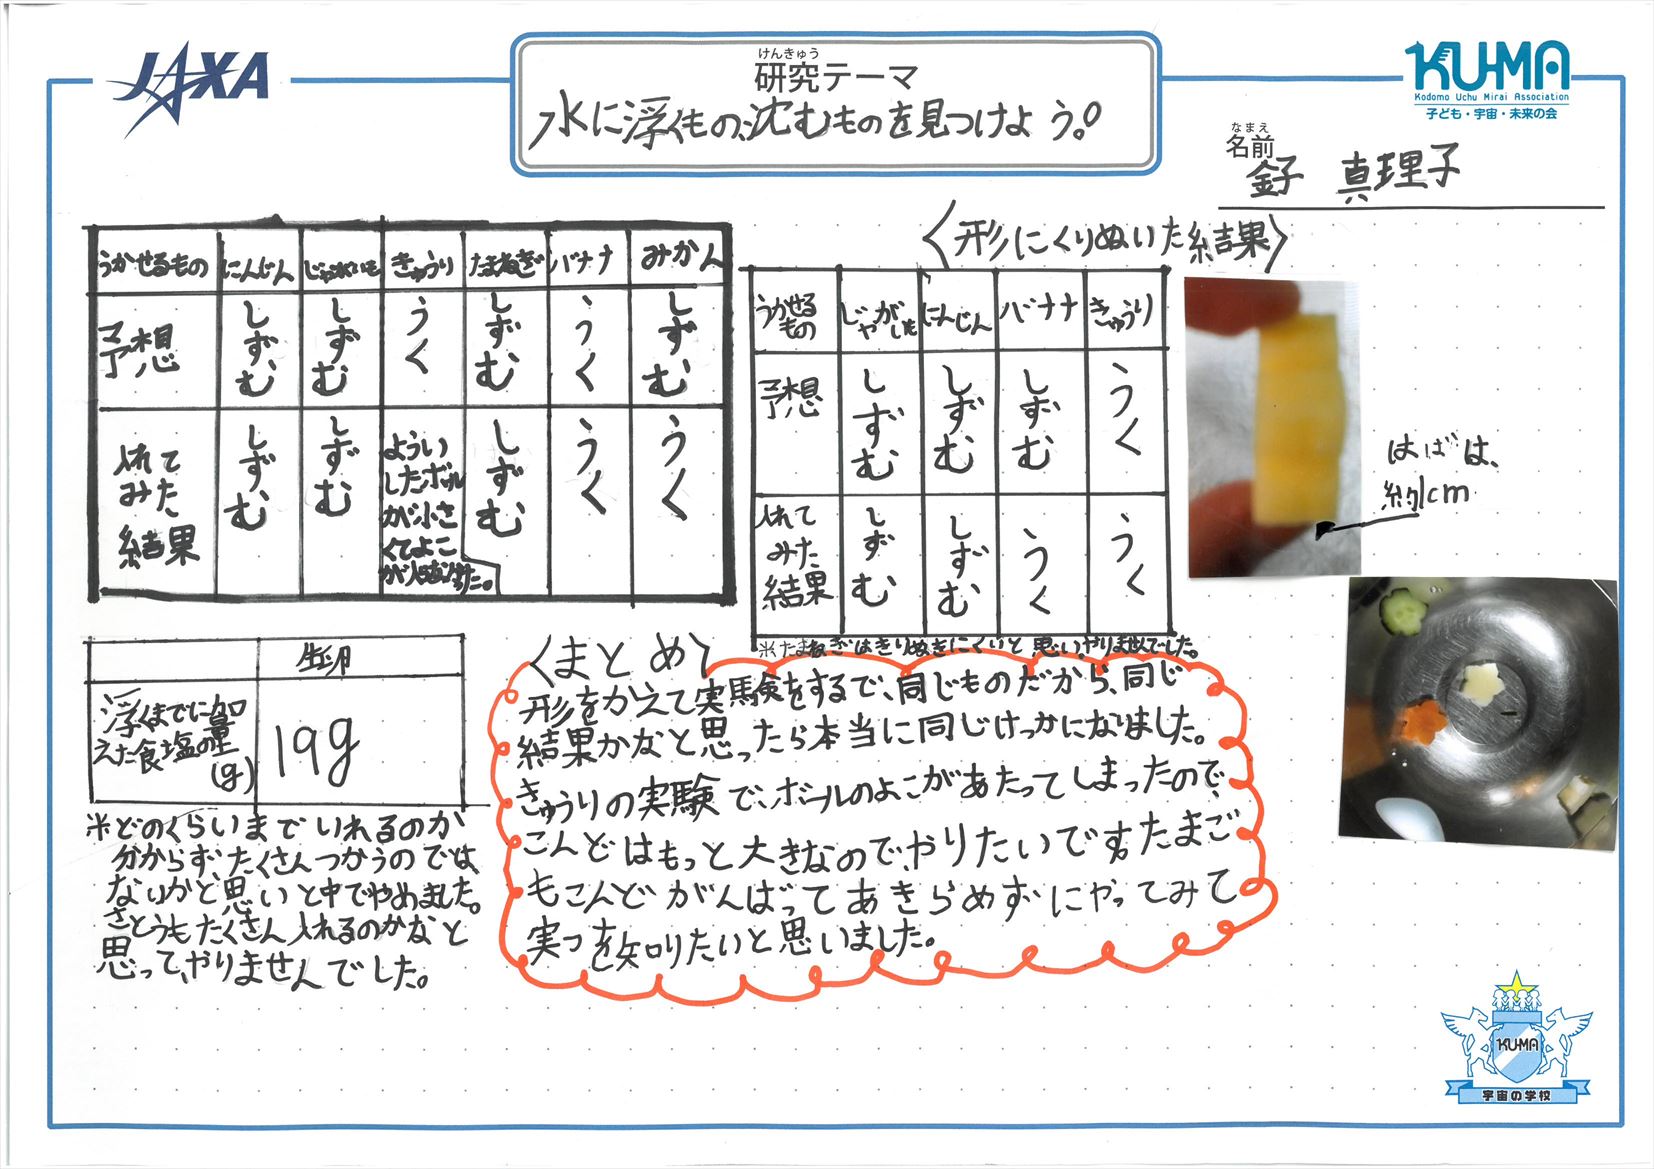 JAXA
けんきゅう
研究テーマ
水に浮くもの、沈むものを見つけよう。!
KU-MA
Kodomo Uchu Mirai Association
子ども・宇宙・未来の会
なまえ
名前
金子 真理子
うかせるもの にんじん じゃがいも きゅうり たまねぎ バナナ みかん
予想 しずむ しずむ うく しずむ うく しずむ
入れて
みた
結果
しずむ
しずむ
ようい
したボール
が小さ
くてよこ
が入らなかった。
しずむ
うく
うく
〈形にくりぬいた結果〉
うかせる
もの
じゃがいも にんじん バナナ きゅうり
予想 しずむ しずむ しずむ うく
入れて
みた
結果
しずむ
しずむ
うく
うく
※たまねぎはきりぬきにくいと思い、やりませんでした。
はばは、
約1cm
生卵
浮くまでに加
えた食塩の量
(g)
19g
※どのくらいまでいれるのか
分からず、たくさんつかうのでは
ないかと思いと中でやめました。
さとうもたくさん入れるのかなと
思って、やりませんでした。
〈まとめ〉
形をかえて実験をするで、同じものだから、同じ
結果かなと思ったら本当に同じけっかになりました。
きゅうりの実験で、ボールのよこがあたってしまったので、
こんどはもっと大きなので、やりたいです。たまご
もこんどがんばってあきらめずにやってみて
実っを知りたいと思いました。
KU-MA
宇宙の学校